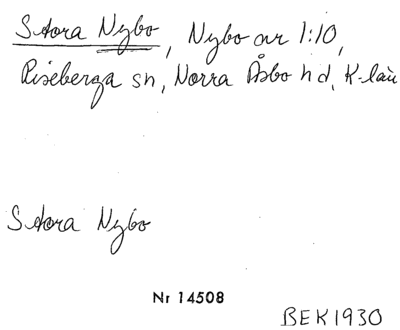 Stora Nybo, Nybo nr 1:10,
Riseberga sn, Norra Åsbo hd, K-län
Stora Nybo
Nr 14508
BEK1930